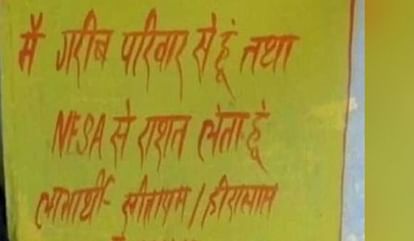 मैं गरीब परिवार से हूं तथा
NFSA से राशन लेता हूं
लाभार्थी- सीताराम / हीरालाल